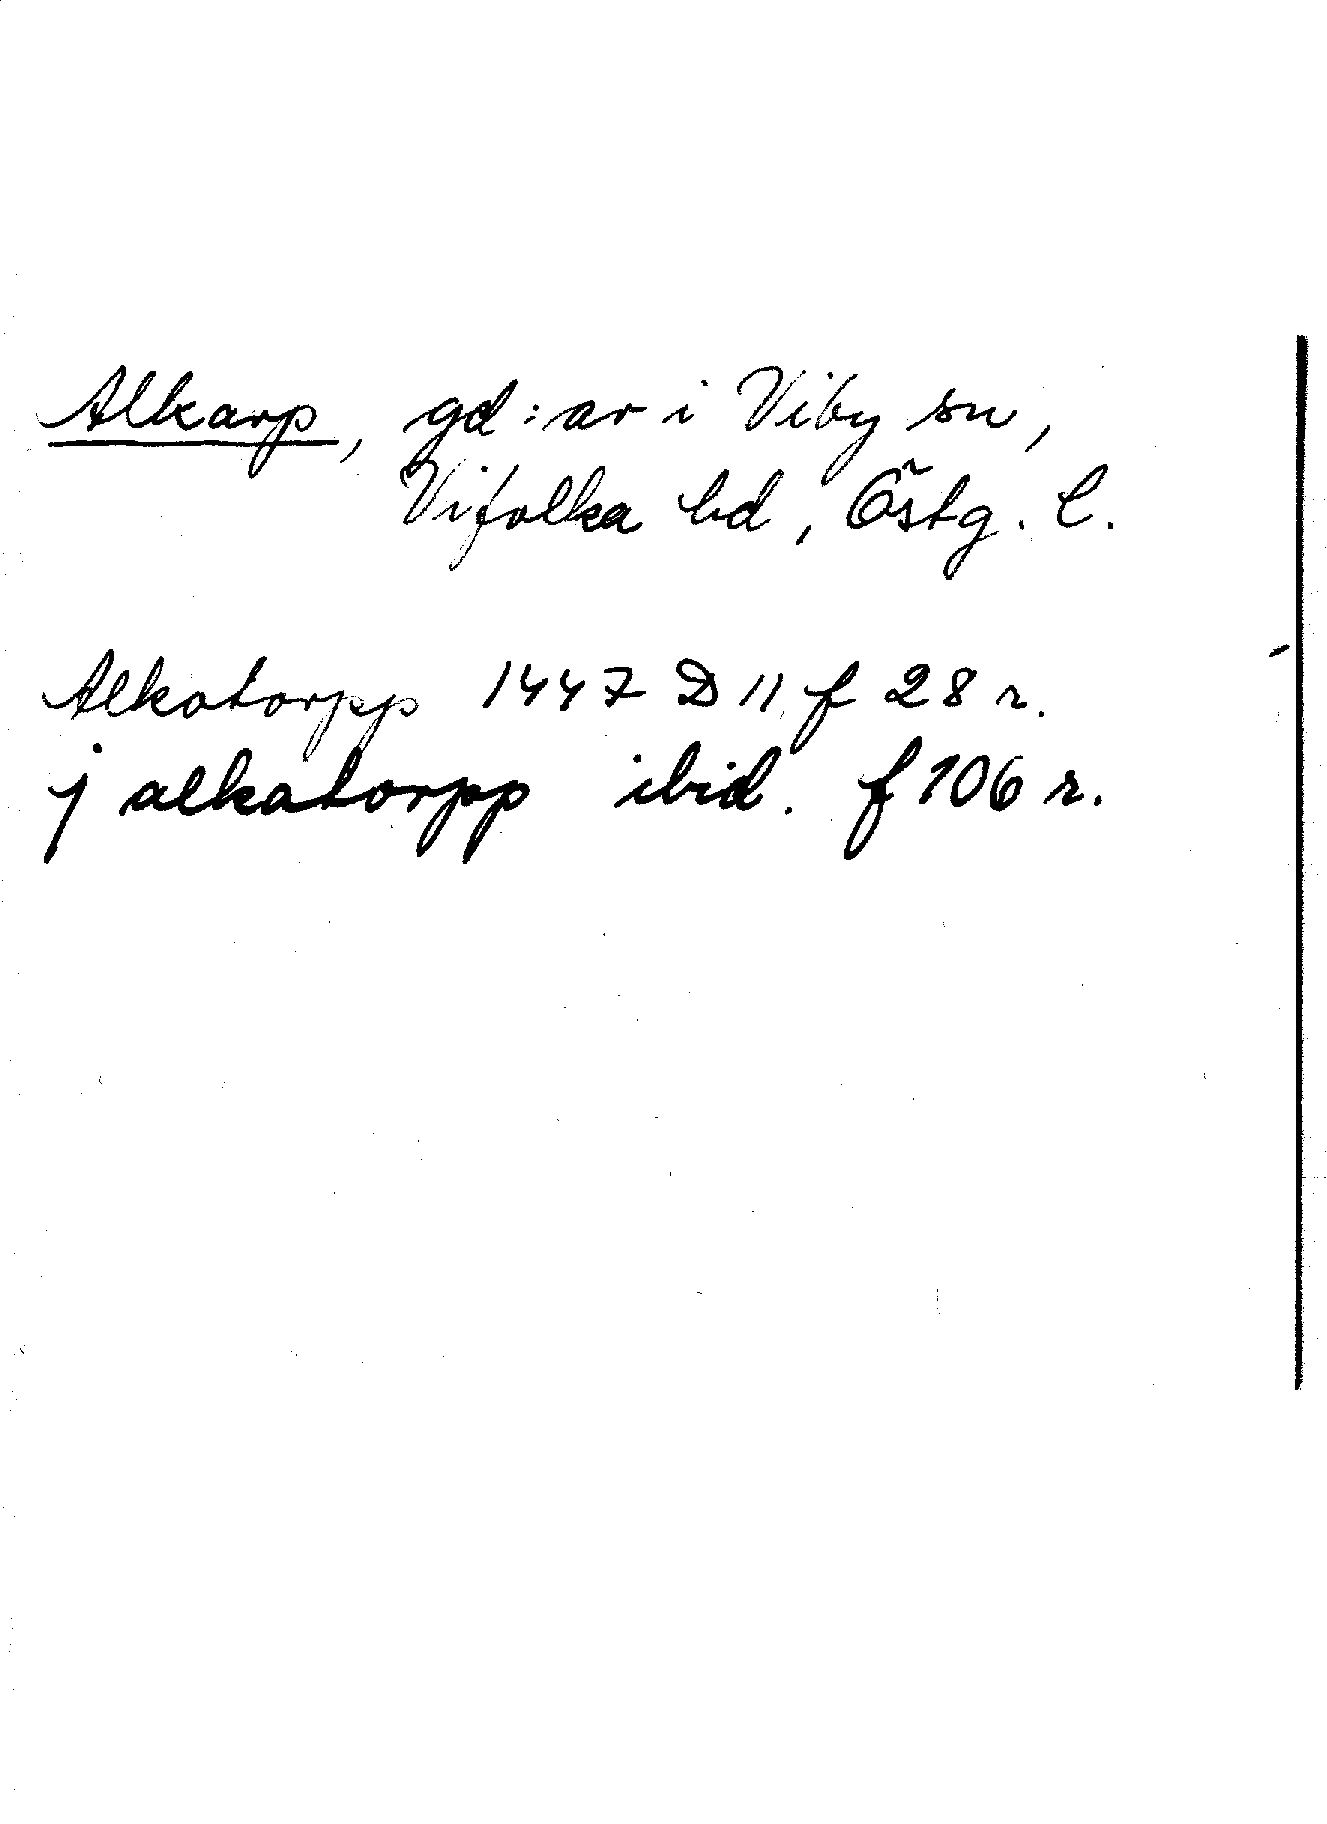 Alkarp, gd:ar i Viby sn,
Vifolka hd, Östg. l.
Alkatorpp 1447 D 11 f 28 r.
j alkatorpp ibid. f 106 r.